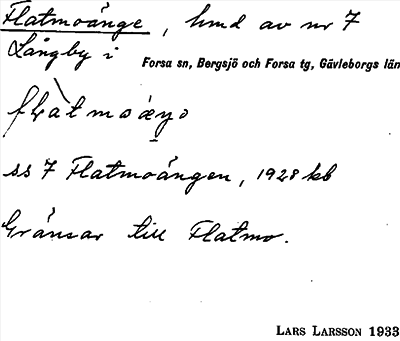 Flatmoänge, hmd av nr 7
Långby i Forsa sn, Bergsjö och Forsa tg, Gävleborgs län
ss 7 Flatmoängen, 1928 kb
Gränsar till Flatmo.
LARS LARSSON 1933